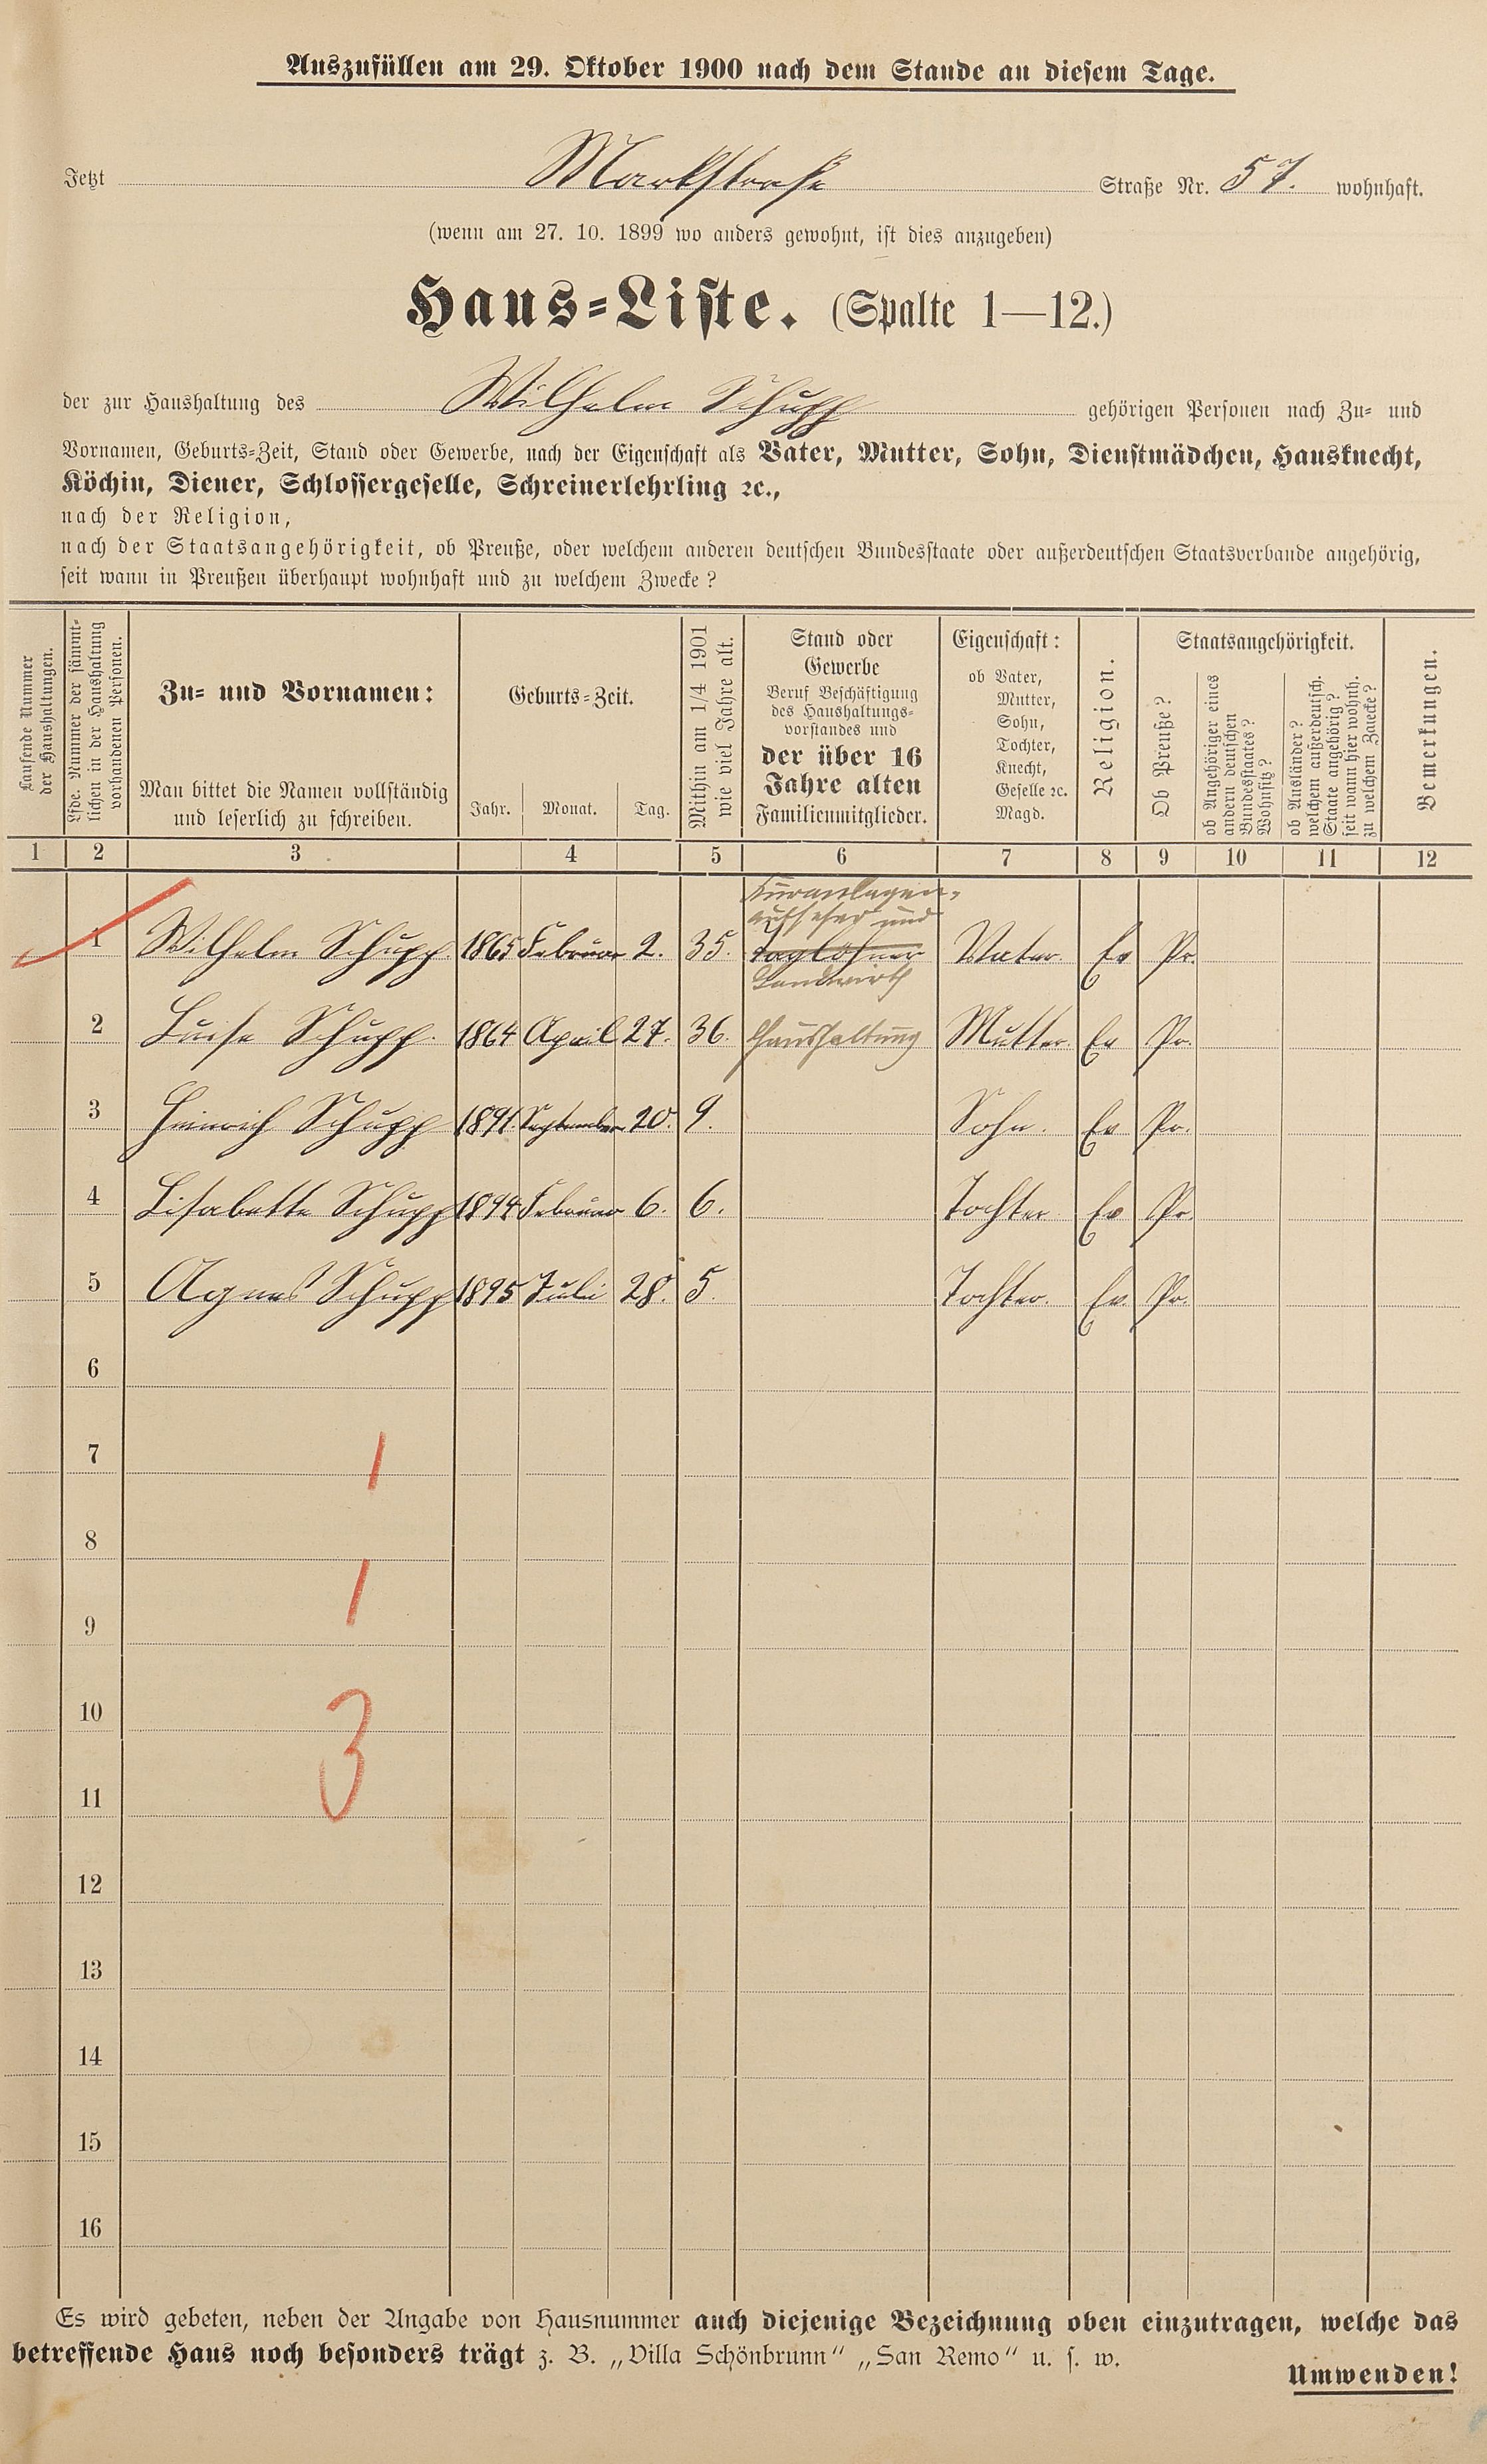 Auszufüllen am 29. Oktober 1900 nach dem Stande an diesem Tage.
Jetzt Markstraße Straße Nr. 57. wohnhaft.
(wenn am 27. 10. 1899 wo anders gewohnt, ist dies anzugeben)
Haus-Liste. (Spalte 1—12.)
der zur Haushaltung des Wilhelm Schupp gehörigen Personen nach Zu- und
Vornamen, Geburts-Zeit, Stand oder Gewerbe, nach der Eigenschaft als Vater, Mutter, Sohn, Dienstmädchen, Hausknecht,
Köchin, Diener, Schlossergeselle, Schreinerlehrling ꝛc.,
nach der Religion,
nach der Staatsangehörigkeit, ob Preuße, oder welchem anderen deutschen Bundesstaate oder außerdeutschen Staatsverbande angehörig,
seit wann in Preußen überhaupt wohnhaft und zu welchem Zwecke?
Laufende Nummer
der Haushaltungen.
Lfde. Nummer der sämmt-
lichen in der Haushaltung
vorhandenen Personen.
Zu- und Vornamen:
Man bittet die Namen vollständig
und leserlich zu schreiben.
Geburts-Zeit.
Jahr. Monat. Tag.
Mithin am 1/4 1901
wie viel Jahre alt.
Stand oder
Gewerbe
Beruf Beschäftigung
des Haushaltungs-
vorstandes und
der über 16
Jahre alten
Familienmitglieder.
Eigenschaft:
ob Vater,
Mutter,
Sohn,
Tochter,
Knecht,
Geselle ꝛc.
Magd.
Religion.
Staatsangehörigkeit.
Ob Preuße?
ob Angehöriger eines
andern deutschen
Bundesstaates?
Wohnsitz?
ob Ausländer?
welchem außerdeutsch.
Staate angehörig?
seit wann hier wohnh.
zu welchem Zwecke?
Bemerkungen.
1 2 3 4 5 6 7 8 9 10 11 12
Kuranlagen-
aufseher und
1 Wilhelm Schupp 1865 Februar 2. 35. Taglöhner Vater Ev Pr.
Landwirth
2 Luise Schupp. 1864 April 27. 36. Haushaltung Mutter Ev Pr.
3 Heinrich Schupp 1891. September 20. 9. Sohn. Ev Pr.
4 Lisabette Schupp 1894 Februar 6. 6. Tochter Ev Pr.
5 Agnes Schupp 1895 Juli 28. 5. Tochter. Ev. Pr.
6
7
1
8
1
9
10
3
11
12
13
14
15
16
Es wird gebeten, neben der Angabe von Hausnummer auch diejenige Bezeichnung oben einzutragen, welche das
betreffende Haus noch besonders trägt z. B. „Villa Schönbrunn" „San Remo" u. s. w.
Umwenden!